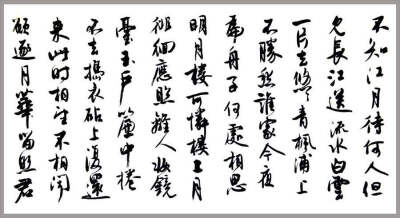 不知江月待何人但
見長江送流水白雲
一片去悠々青楓浦上
不勝愁誰家今夜
扁舟子何處相思
明月樓可憐樓上月
徘徊應照離人妝鏡
臺玉戶簾中捲
不去搗衣砧上復還
来此時相望不相聞
願逐月華留照君